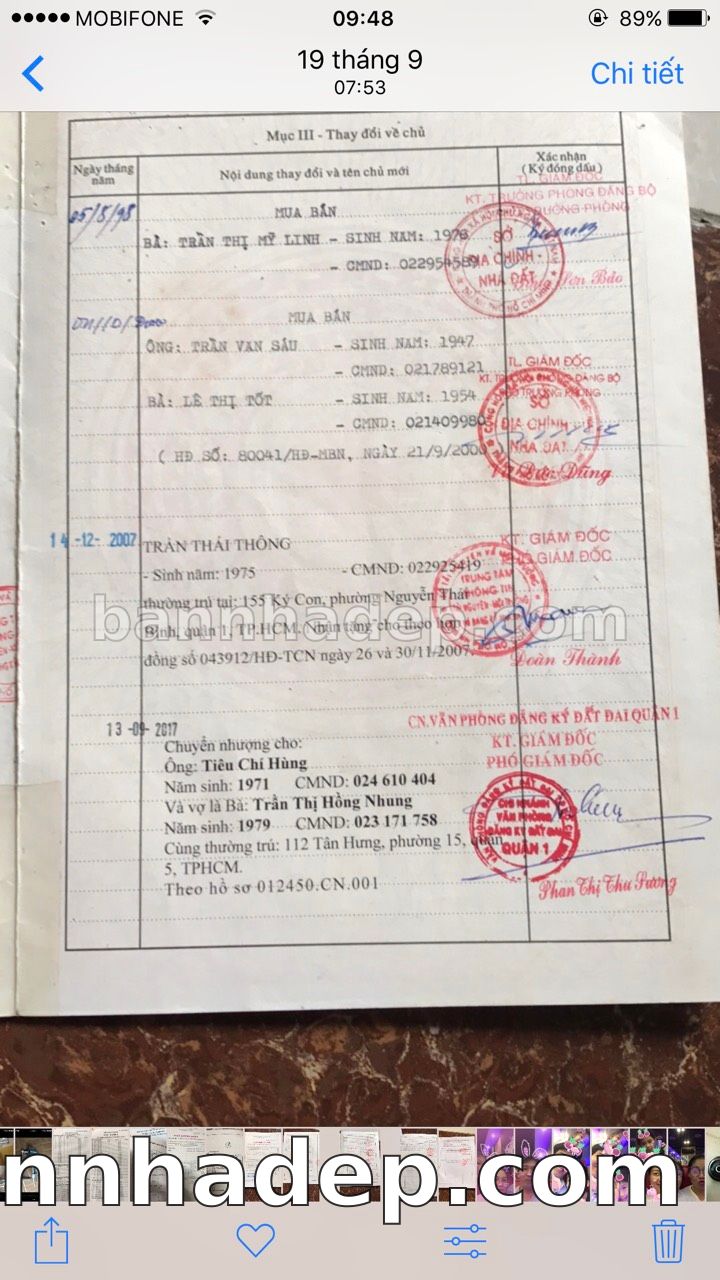 MOBIFONE 09:48 89%
19 tháng 9
07:53
Chi tiết
Mục III - Thay đổi về chủ
Ngày tháng năm
Nội dung thay đổi và tên chủ mới
Xác nhận
(Ký đóng dấu)
TL. GIÁM ĐỐC
KT. TRƯỞNG PHÒNG ĐĂNG BỘ
05/8/98
MUA BÁN
BÀ: TRẦN THỊ MỸ LINH - SINH NĂM: 1976
- CMND: 022954589
SỞ
ĐỊA CHÍNH -
NHÀ ĐẤT
Sơn Bảo
MUA BÁN
ÔNG: TRẦN VAN SÁU - SINH NAM: 1947
- CMND: 021789121
BÀ: LÊ THỊ TỐT - SINH NAM: 1954
- CMND: 021409980
( HĐ SỐ: 80041/HĐ-MBN, NGÀY 21/9/2000
TL. GIÁM ĐỐC
KT. TRƯỞNG PHÒNG ĐĂNG BỘ
PHÓ TRƯỞNG PHÒNG
SỞ
ĐỊA CHÍNH
NHÀ ĐẤT
Đức Dũng
14 -12- 2007
TRẦN THÁI THÔNG
- Sinh năm: 1975 - CMND: 022925419
thường trú tại: 155 Ký Con, phường Nguyễn Thái
Bình, quận 1, TP.HCM. Nhận tặng cho theo hợp
đồng số 043912/HĐ-TCN ngày 26 và 30/11/2007.
KT. GIÁM ĐỐC
PHÓ GIÁM ĐỐC
TRUNG TÂM
THÔNG TIN
Đoàn Thành
bannhadep.com
13 -09- 2017
Chuyển nhượng cho:
Ông: Tiêu Chí Hùng
Năm sinh: 1971 CMND: 024 610 404
Và vợ là Bà: Trần Thị Hồng Nhung
Năm sinh: 1979 CMND: 023 171 758
Cùng thường trú: 112 Tân Hưng, phường 15, quận
5, TPHCM.
Theo hồ sơ 012450.CN.001
CN.VĂN PHÒNG ĐĂNG KÝ ĐẤT ĐAI QUẬN 1
KT. GIÁM ĐỐC
PHÓ GIÁM ĐỐC
CHI NHÁNH
VĂN PHÒNG
ĐĂNG KÝ ĐẤT ĐAI
QUẬN 1
Phan Thị Thu Sương
nnhadep.com